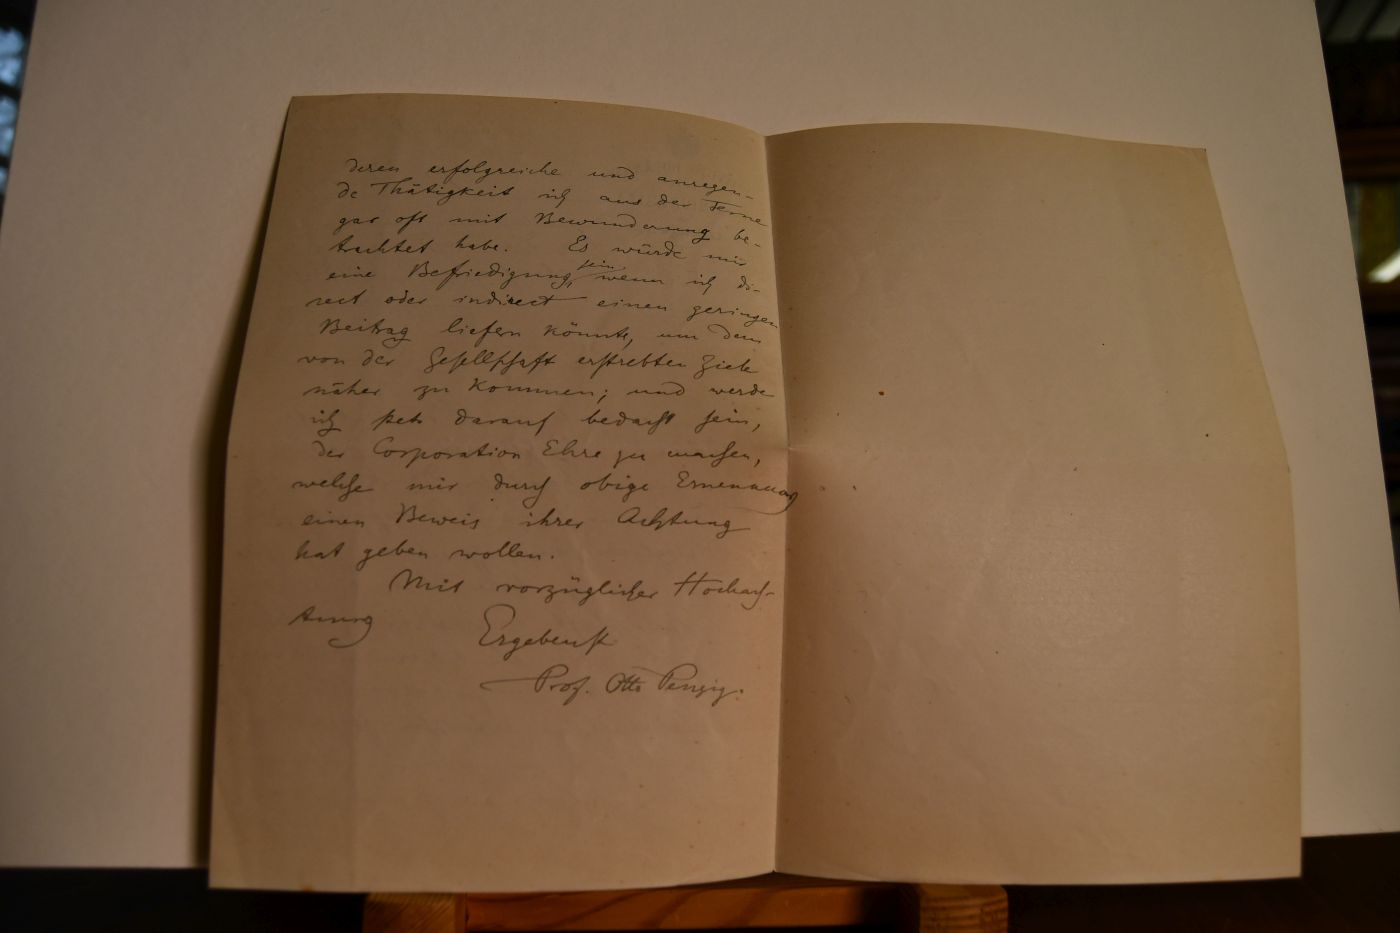 deren erfolgreiche und anregen-
de Thätigkeit ich aus der Ferne
gar oft mit Bewunderung be-
trachtet habe. Es würde mir
eine Befriedigung sein, wenn ich di-
rect oder indirect einen geringen
Beitrag liefern könnte, um dem
von der Gesellschaft erstrebten Ziele
näher zu kommen; und werde
ich stets darauf bedacht sein,
der Corporation Ehre zu machen,
welche mir durch obige Ernennung
einen Beweis ihrer Achtung
hat geben wollen.
Mit vorzüglicher Hochach-
tung Ergebenst
Prof. Otto Penzig.